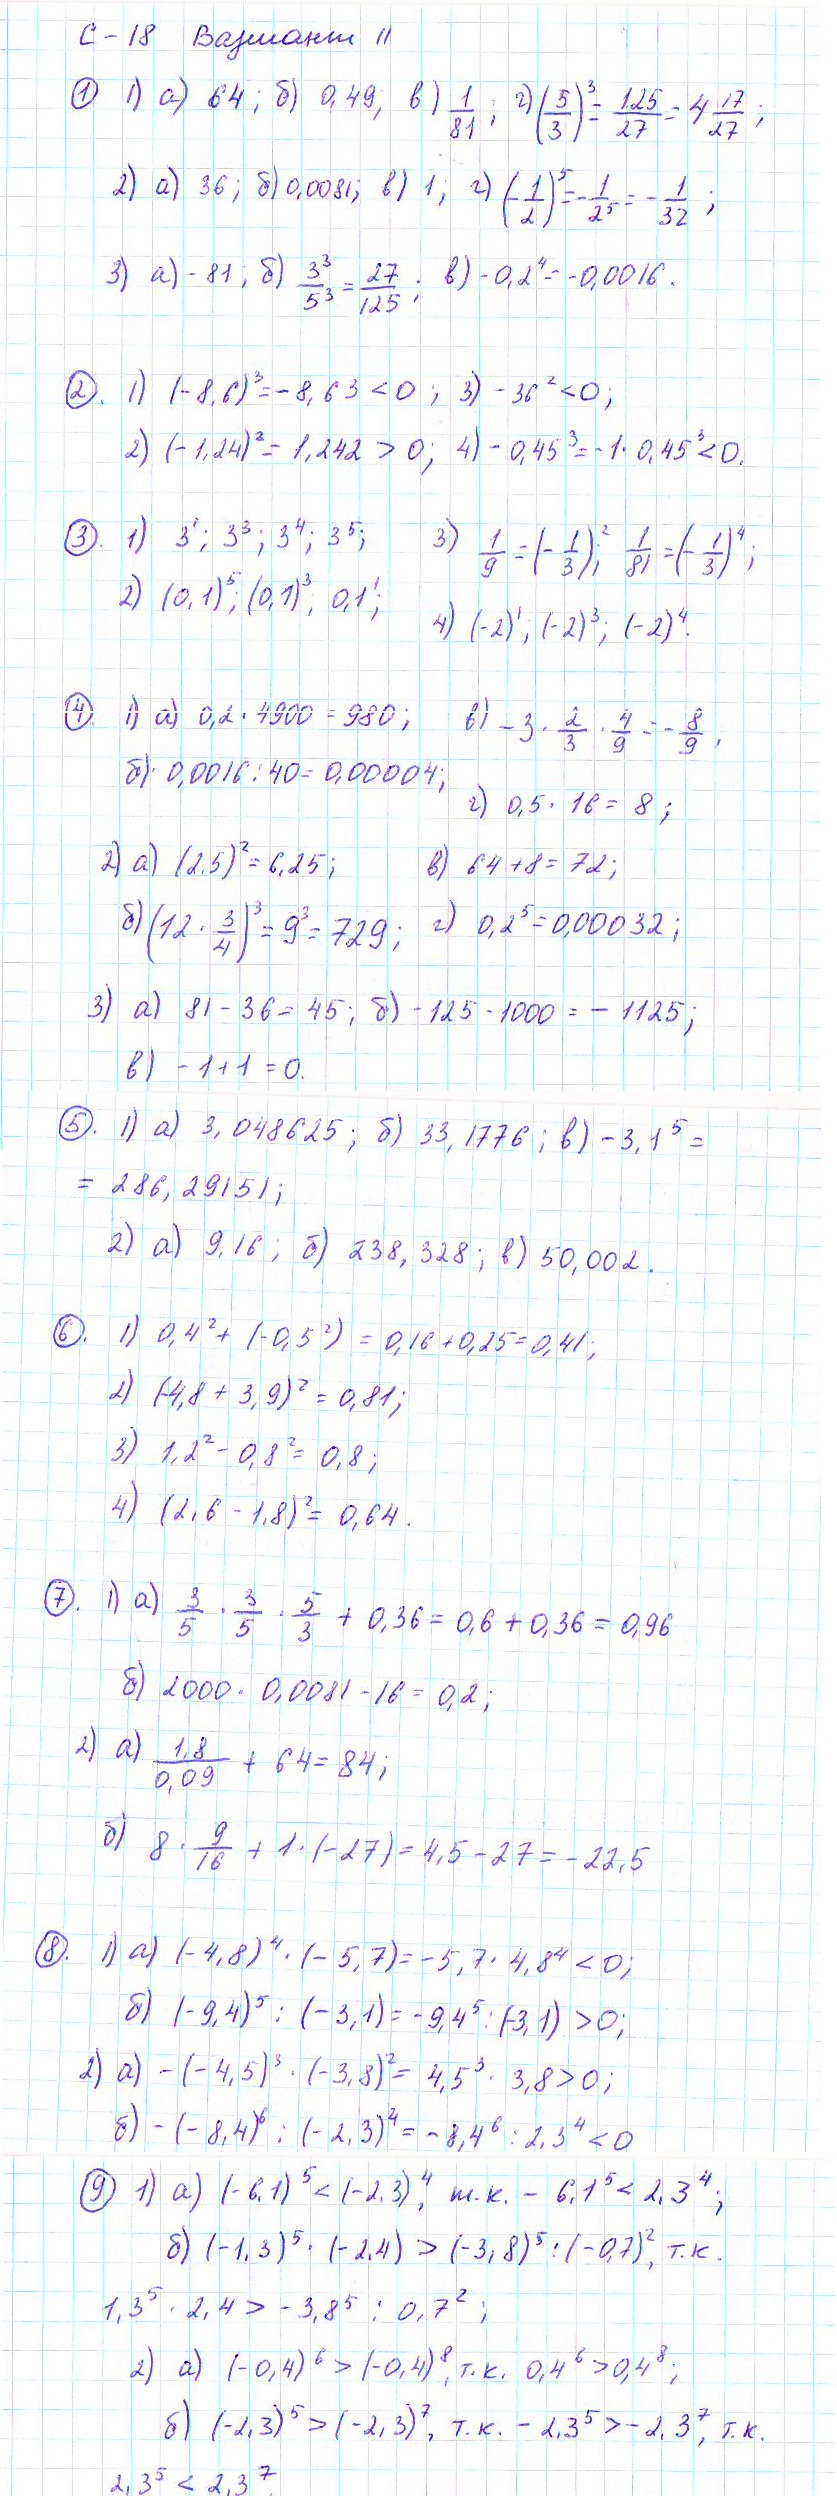 С-18 Вариант II
① 1) а) 64; б) 0,49; в) 1/81; г) (5/3)³ = 125/27 = 4 17/27;
2) а) 36; б) 0,0081; в) 1; г) (-1/2)⁵ = -1/2⁵ = -1/32;
3) а) -81; б) 3³/5³ = 27/125; в) -0,2⁴ = -0,0016.
②. 1) (-8,6)³ = -8,63 < 0; 3) -36² < 0;
2) (-1,24)² = 1,242 > 0; 4) -0,45³ = -1·0,45³ < 0.
③. 1) 3¹; 3³; 3⁴; 3⁵; 3) 1/9 = (-1/3)²; 1/81 = (-1/3)⁴;
2) (0,1)⁵; (0,1)³; 0,1¹; 4) (-2)¹; (-2)³; (-2)⁴.
④. 1) а) 0,2·4900 = 980; в) -3·2/3·4/9 = -8/9;
б) 0,0016:40 = 0,00004; г) 0,5·16 = 8;
2) а) (2,5)² = 6,25; в) 64+8 = 72;
б) (12·3/4)³ = 9³ = 729; г) 0,2⁵ = 0,00032;
3) а) 81-36 = 45; б) -125-1000 = -1125;
в) -1+1 = 0.
⑤. 1) а) 3,048625; б) 33,1776; в) -3,1⁵ =
= 286,29151;
2) а) 9,16; б) 238,328; в) 50,002.
⑥. 1) 0,4² + (-0,5²) = 0,16+0,25 = 0,41;
2) (-4,8+3,9)² = 0,81;
3) 1,2² - 0,8² = 0,8;
4) (2,6-1,8)² = 0,64.
⑦. 1) а) 3/5·3/5·5/3 + 0,36 = 0,6+0,36 = 0,96
б) 2000·0,0081-16 = 0,2;
2) а) 1,8/0,09 + 64 = 84;
б) 8·9/16 + 1·(-27) = 4,5-27 = -22,5
⑧. 1) а) (-4,8)⁴·(-5,7) = -5,7·4,8⁴ < 0;
б) (-9,4)⁵:(-3,1) = -9,4⁵:(-3,1) > 0;
2) а) -(-4,5)³·(-3,8)² = 4,5³·3,8 > 0;
б) -(-8,4)⁶:(-2,3)⁴ = -8,4⁶:2,3⁴ < 0
⑨ 1) а) (-6,1)⁵ < (-2,3)⁴, т.к. -6,1⁵ < 2,3⁴;
б) (-1,3)⁵·(-2,4) > (-3,8)⁵:(-0,7)², т.к.
1,3⁵·2,4 > -3,8⁵:0,7²;
2) а) (-0,4)⁶ > (-0,4)⁸, т.к. 0,4⁶ > 0,4⁸;
б) (-2,3)⁵ > (-2,3)⁷, т.к. -2,3⁵ > -2,3⁷, т.к.
2,3⁵ < 2,3⁷.